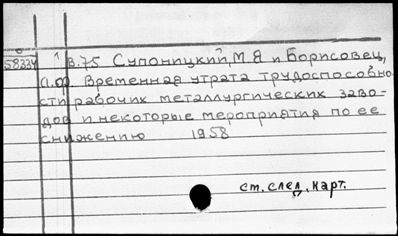 58334 1 В.75 Супоницкий, М.Я и Борисовец,
Временная утрата трудоспособно-
сти рабочих металлургических заво-
дов и некоторые мероприятия по ее
снижению 1958
см. след. карт.